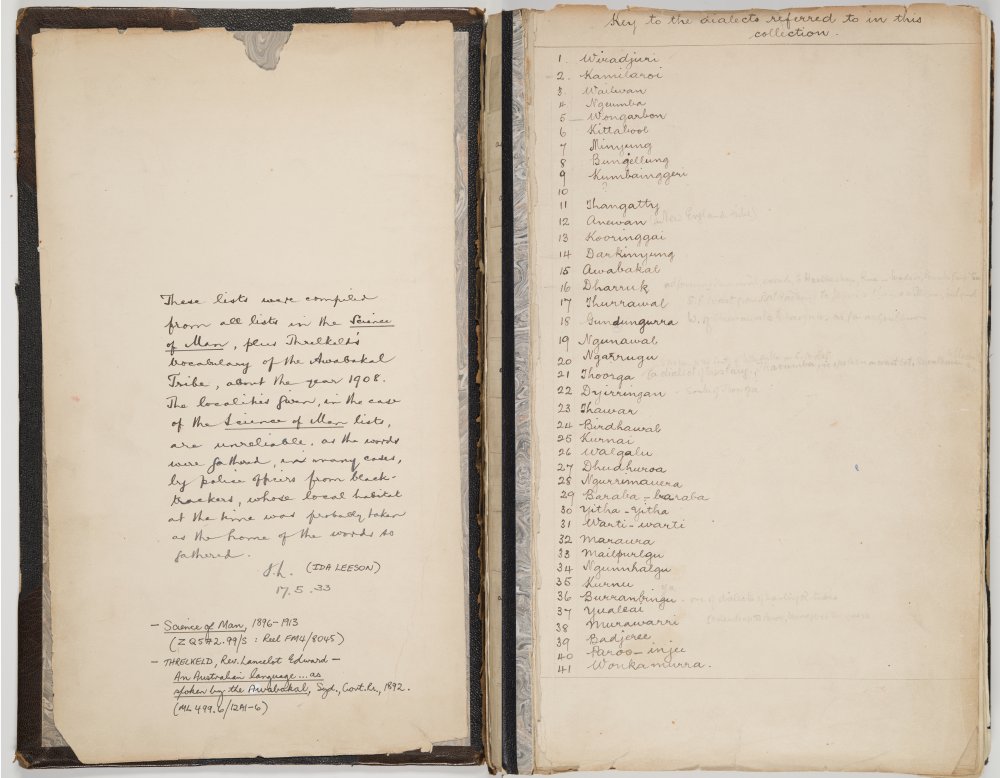 These lists were compiled
from all lists in the Science
of Man, plus Threlkeld's
vocabulary of the Awabakal
Tribe, about the year 1908.
The localities given, in the case
of the Science of Man lists,
are unreliable, as the words
were gathered, in many cases,
by police officers from black-
trackers, whose local habitat
at the time was probably taken
as the home of the words so
gathered.
(IDA LEESON)
17.5.33
- Science of Man, 1896-1913
(ZQ572.99/S : Reel FM4/8045)
- THRELKELD, Rev. Lancelot Edward -
An Australian language ... as
spoken by the Awabakal, Syd., Govt. Pr., 1892.
(ML 499.6/12A1-6)
Key to the dialects referred to in this
collection.
1. Wiradjuri
2. Kamilaroi
3 Wailwan
4 Ngeumba
5 Wongarbon
6 Kittabool
7 Minyung
8 Bungellung
9 Kumbainggeri
10 ?
11 Thangatty
12 Anewan (New England tribe)
13 Kooringgai
14 Darkinyung
15 Awabakal
16 Dharruk
17 Thurrawal
18 Gundungurra
19 Ngunawal
20 Ngarrugu
21 Thoorga
22 Dyirringan
23 Thawar
24 Birdhawal
25 Kurnai
26 Walgalu
27 Dhudhuroa
28 Ngurrimauera
29 Baraba-baraba
30 Yitha-Yitha
31 Warti-warti
32 Maraura
33 Mailpurlgu
34 Ngunnhalgu
35 Kurnu
36 Burranbingu
37 Yualeai
38 Murawarri
39 Badjeree
40 Paroo-injee
41 Wonkamurra.